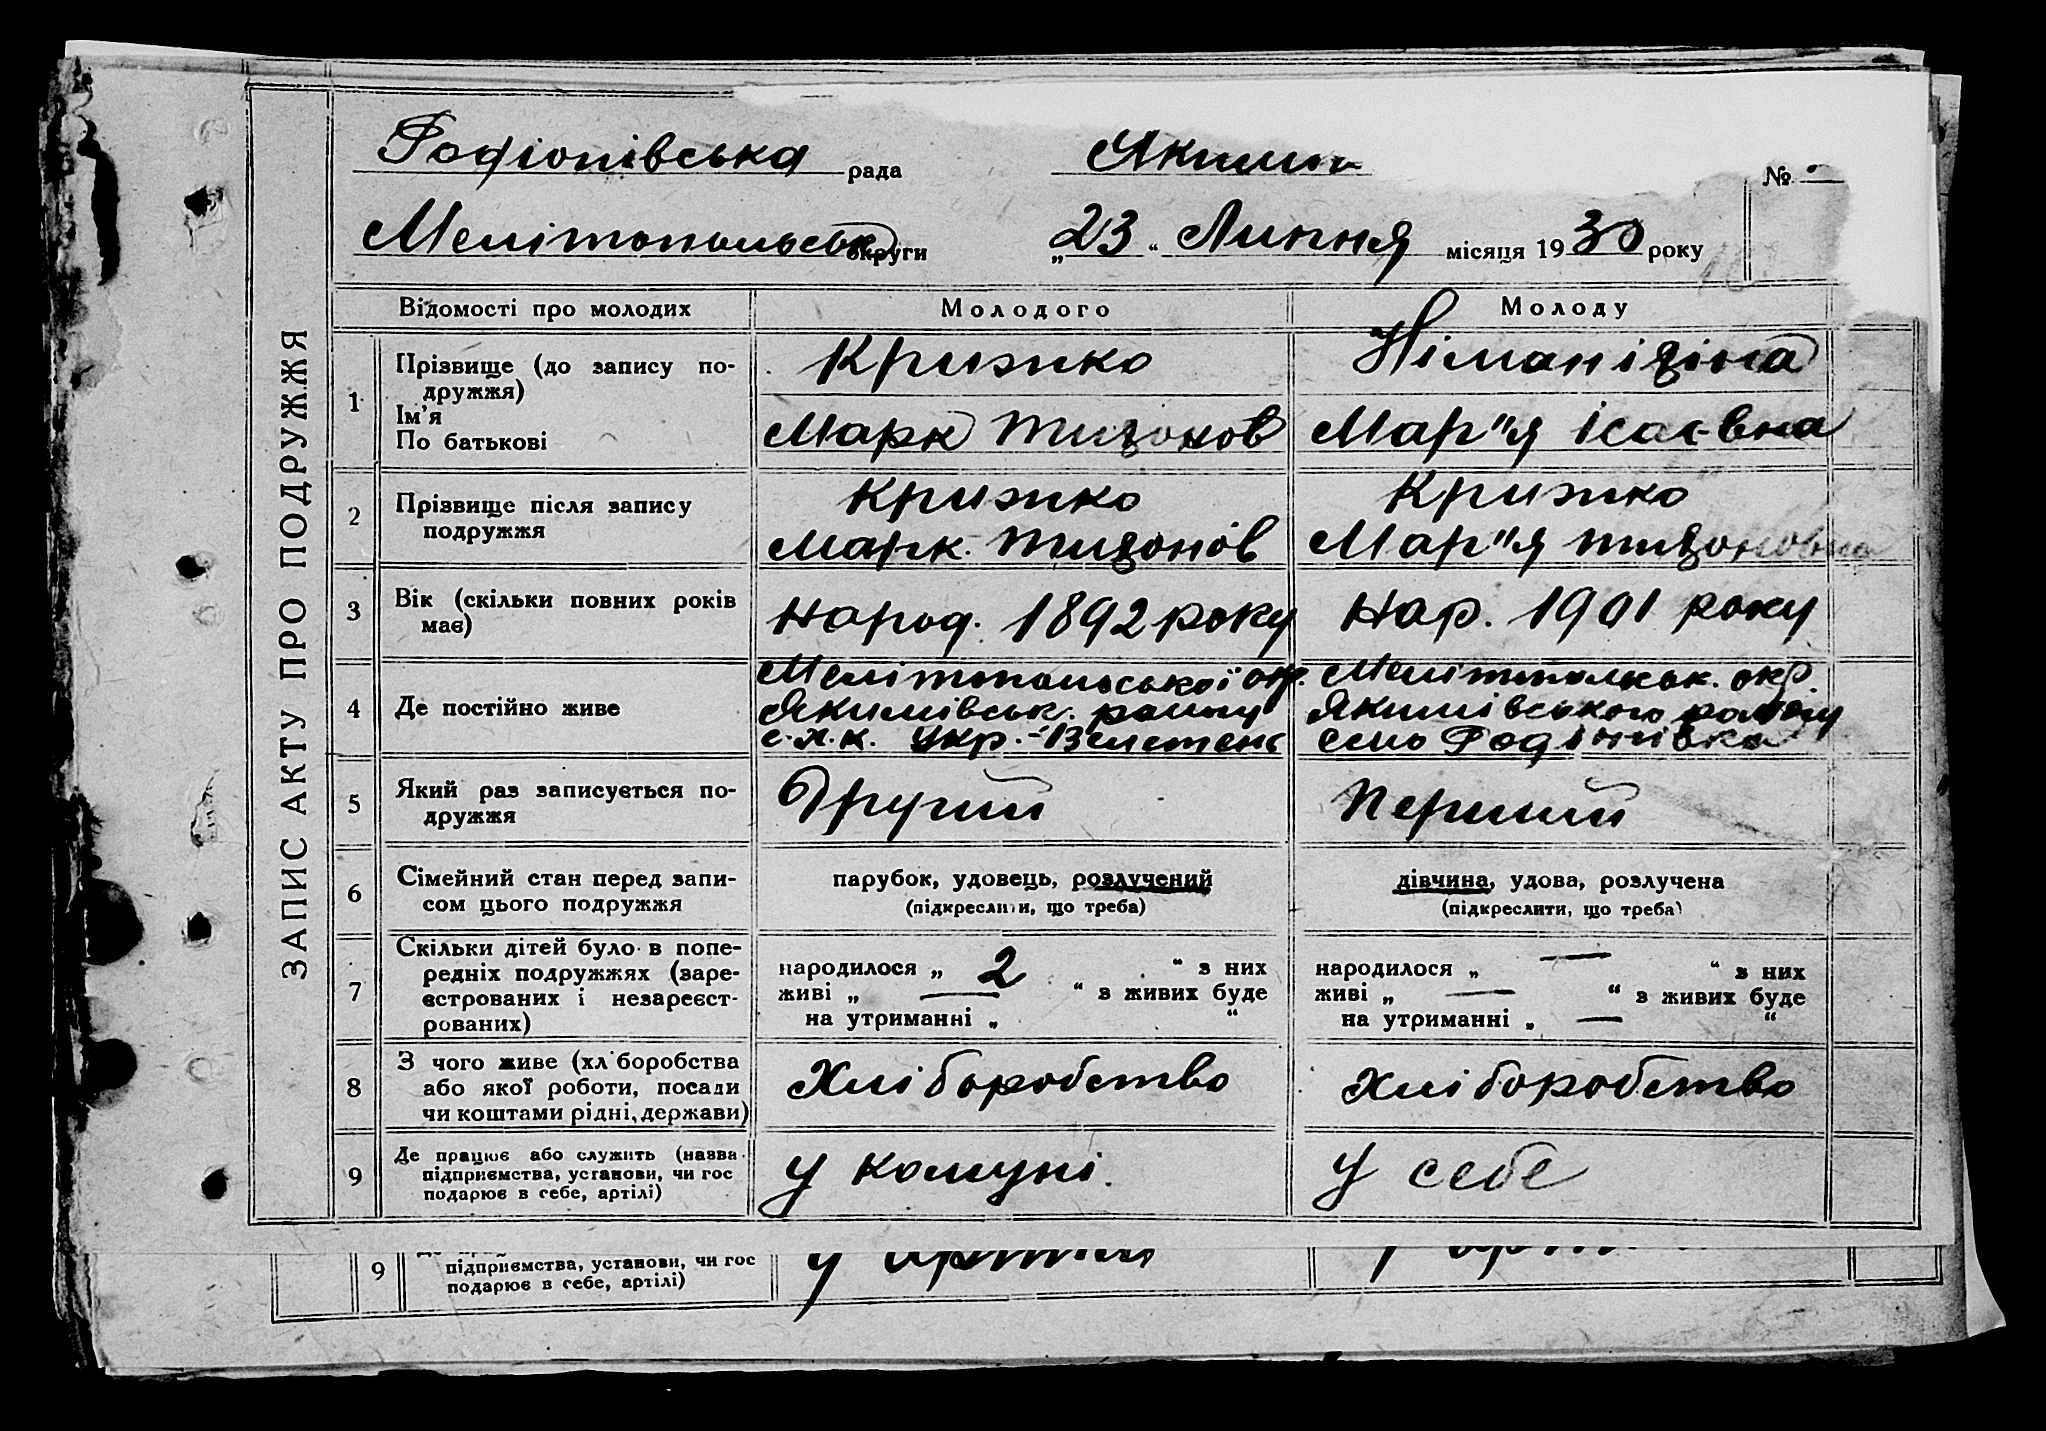 ЗАПИС АКТУ ПРО ПОДРУЖЖЯ
Родіонівська рада
№
Мелітопольськ округи „23“ Липня місяця 1930 року
Відомості про молодих Молодого Молоду
1 Прізвище (до запису по-
дружжя)
Ім'я
По батькові
Крижко
Марк Тихонов
Мар"я Ісаєвна
2 Прізвище після запису
подружжя
Крижко
Марк Тихонов
Крижко
Мар"я Тихоновна
3 Вік (скільки повних років
має)
Народ. 1892 року
Нар. 1901 року
4 Де постійно живе
Мелітопольської окр.
Якимівськ. району
с.х.к. Укр.-Велетень
Мелітопольськ. окр.
Якимівського району
село Родіонівка
5 Який раз записується по-
дружжя
Другий
Перший
6 Сімейний стан перед запи-
сом цього подружжя
парубок, удовець, розлучений
(підкреслити, що треба)
дівчина, удова, розлучена
(підкреслити, що треба)
7 Скільки дітей було в попе-
редніх подружжях (заре-
єстрованих і незареєст-
рованих)
народилося „ 2 “ з них
живі „ — “ з живих буде
на утриманні „ “
народилося „ — “ з них
живі „ — “ з живих буде
на утриманні „ — “
8 З чого живе (хліборобства
або якої роботи, посади
чи коштами рідні, держави)
Хліборобство
Хліборобство
9 Де працює або служить (назва
підприємства, установи, чи гос
подарює в себе, артілі)
У комуні.
У себе
9 підприємства, установи, чи гос
подарює в себе, артілі)